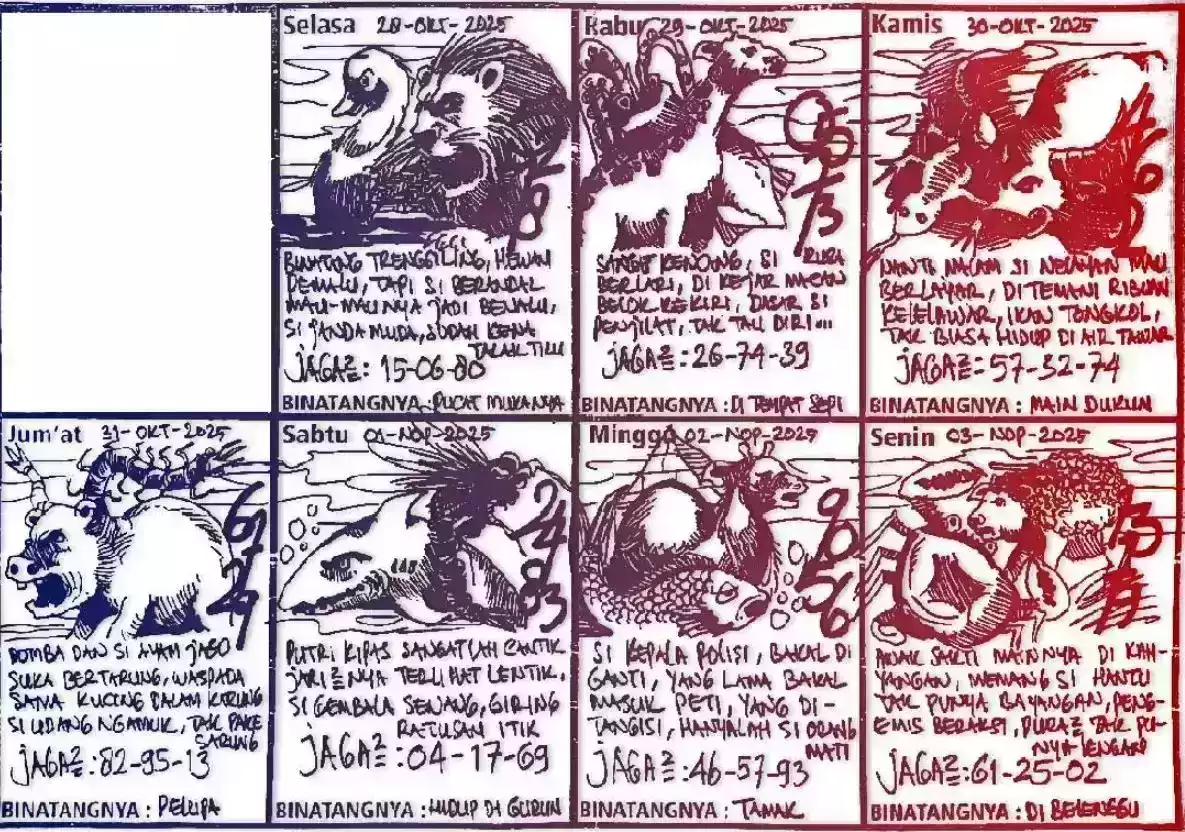 Selasa 28-OKT-2025
BINATANG TRENGGILING, HEWAN
PEMALU, TAPI SI BERANDAL
MAU-MAUNYA JADI BENALU,
SI JANDA MUDA, SUDAH KENA
JAGA²: 15-06-80
BINATANGNYA : PUCAT MUKANYA
Rabu 29-OKT-2025
SANGAT KENCANG, SI RUSA
BERLARI, DI KEJAR MACAN
BELOK KEKIRI, DASAR SI
PENJILAT, TAK TAU DIRI...
JAGA²: 26-74-39
BINATANGNYA : DI TEMPAT SEPI
Kamis 30-OKT-2025
NANTI MALAM SI NELAYAN MAU
BERLAYAR, DITEMANI RIBUAN
KELELAWAR, IKAN TONGKOL,
TAK BIASA HIDUP DI AIR TAWAR
JAGA²= 57-32-74
BINATANGNYA : MAIN DUKUN
Jum'at 31-OKT-2025
67
7
29
DOMBA DAN SI AYAM JAGO
SUKA BERTARUNG, WASPADA
SAMA KUCING DALAM KARUNG
SI UDANG NGAMUK, TAK PAKE
SARUNG
JAGA²:82-95-13
BINATANGNYA : PELUPA
Sabtu 01-NOP-2025
2
4
83
PUTRI KIPAS SANGATLAH CANTIK
JARI²NYA TERLIHAT LENTIK,
SI GEMBALA SENANG, GIRING
RATUSAN ITIK
JAGA²:04-17-69
BINATANGNYA : HIDUP DI GURUN
Minggu 02-NOP-2025
9
0
5
6
SI KEPALA POLISI, BAKAL DI
GANTI, YANG LAMA BAKAL
MASUK PETI, YANG DI-
TANGISI, HANYALAH SI ORANG
MATI
JAGA²:46-57-93
BINATANGNYA : TAMAK
Senin 03-NOP-2025
ANAK SAKTI MAINNYA DI KAH-
YANGAN, MEMANG SI HANTU
TAK PUNYA BAYANGAN, PENG-
EMIS BERAKSI, PURA² TAK PU-
NYA LENGAN
JAGA²=61-25-02
BINATANGNYA : DI BELENGGU